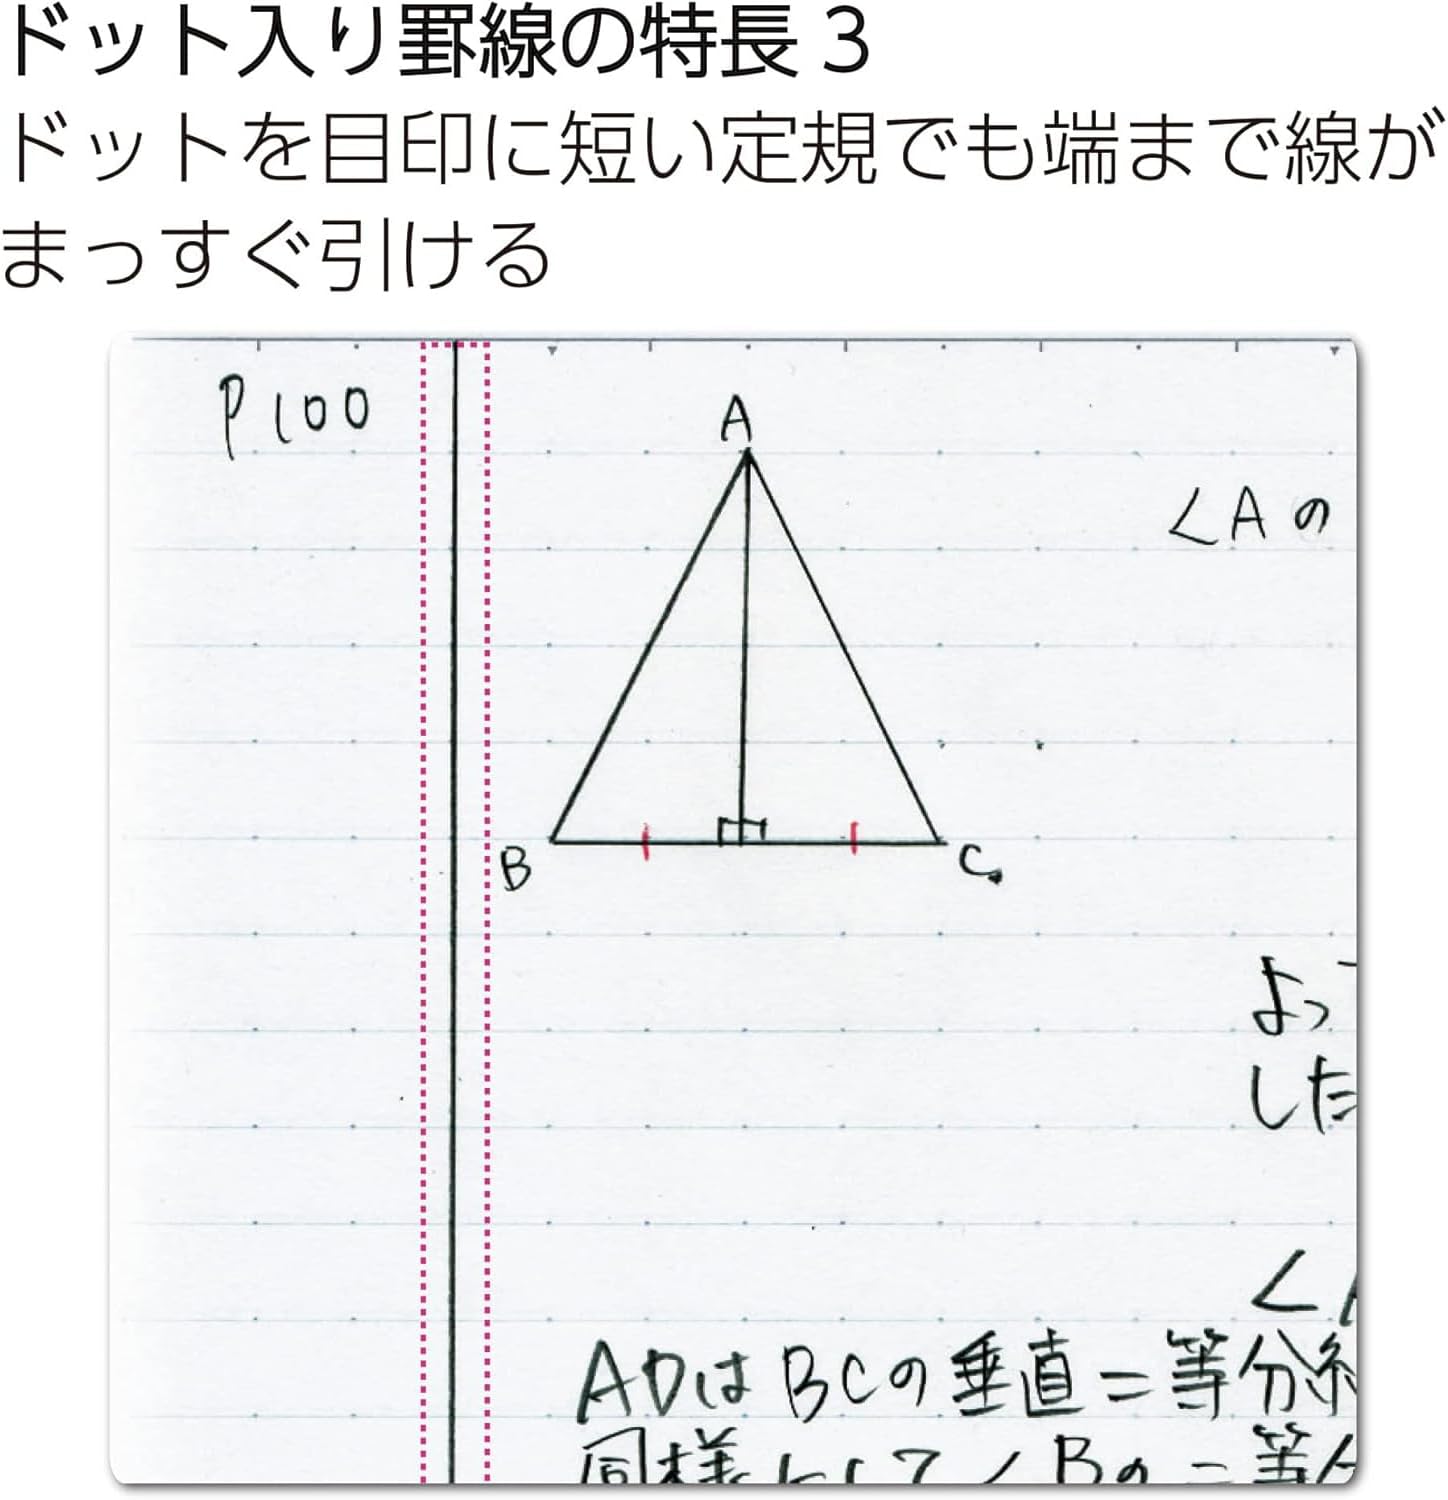 ドット入り罫線の特長 3
ドットを目印に短い定規でも端まで線が
まっすぐ引ける
P100
A
∠Aの
B
C
よっ
した
∠
ADはBCの垂直=等分
同様にして∠Bの=等